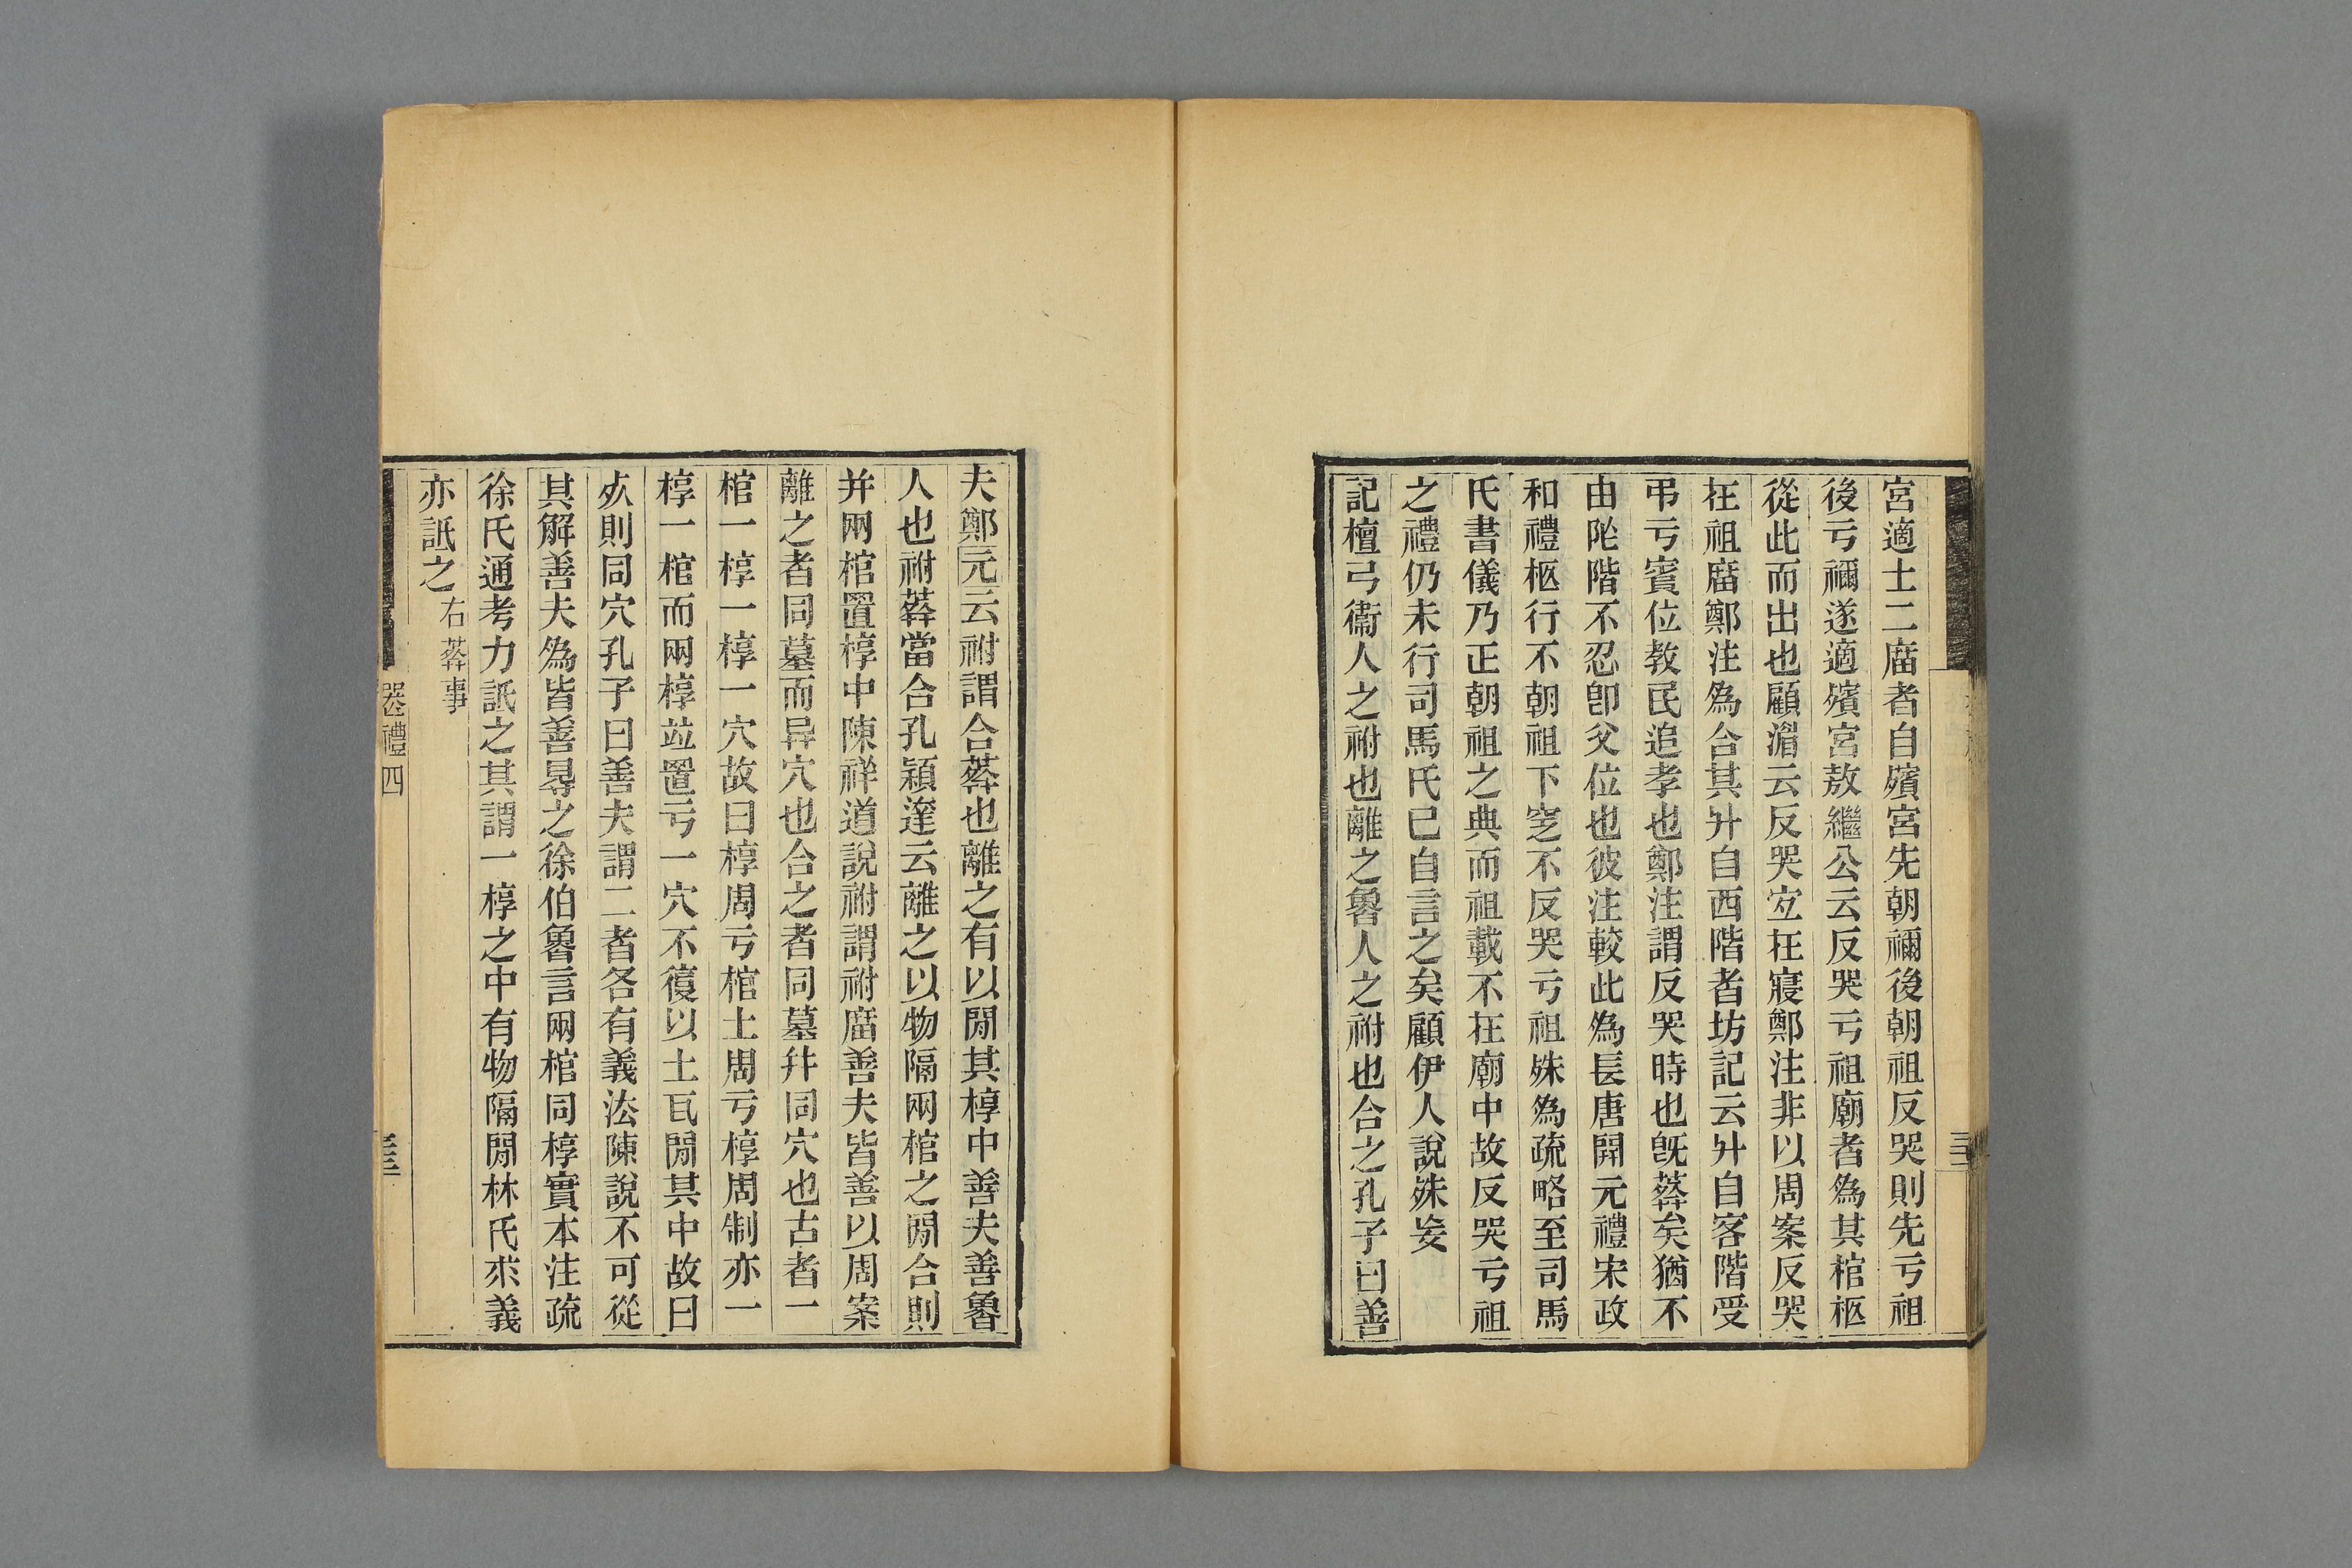 宮適士二庿者自殯宮先朝禰後朝祖反哭則先亏祖
後亏禰遂適殯宮敖繼公云反哭亏祖廟者為其棺柩
從此而出也顧湄云反哭宐在寢鄭注非以周案反哭
在祖庿鄭注為合其升自西階者坊記云升自客階受
弔亏賓位教民追孝也鄭注謂反哭時也旣葬矣猶不
由阼階不忍卽父位也彼注較此為長唐開元禮宋政
和禮柩行不朝祖下窆不反哭亏祖殊為疏略至司馬
氏書儀乃正朝祖之典而祖載不在廟中故反哭亏祖
之禮仍未行司馬氏已自言之矣顧伊人說殊妄
記檀弓衞人之祔也離之魯人之祔也合之孔子曰善
夫鄭元云祔謂合葬也離之有以閒其椁中善夫善魯
人也祔葬當合孔穎達云離之以物隔兩棺之閒合則
并兩棺置椁中陳祥道說祔謂祔庿善夫皆善以周案
離之者同墓而异穴也合之者同墓幷同穴也古者一
棺一椁一椁一穴故曰椁周亏棺土周亏椁周制亦一
椁一棺而兩椁竝置亏一穴不復以土瓦閒其中故曰
死則同穴孔子曰善夫謂二者各有義法陳說不可從
其解善夫為皆善㝵之徐伯魯言兩棺同椁實本注疏
徐氏通考力詆之其謂一椁之中有物隔閒林氏求義
亦詆之右葬事
喪禮四
三三